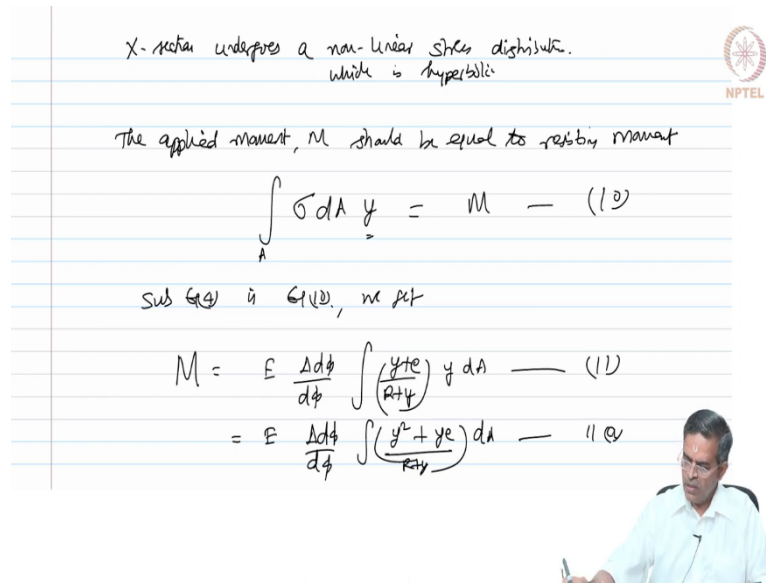 X-section undergoes a non-linear stress distribution.
which is hyperbolic
NPTEL
The applied moment, M should be equal to resisting moment
∫_A σ dA y = M — (10)
Sub Eq(4) in Eq(10), we get
M = E Δdφ/dφ ∫ ((y+e)/(R+y)) y dA — (11)
= E Δdφ/dφ ∫ ((y² + ye)/(R+y)) dA — 11a